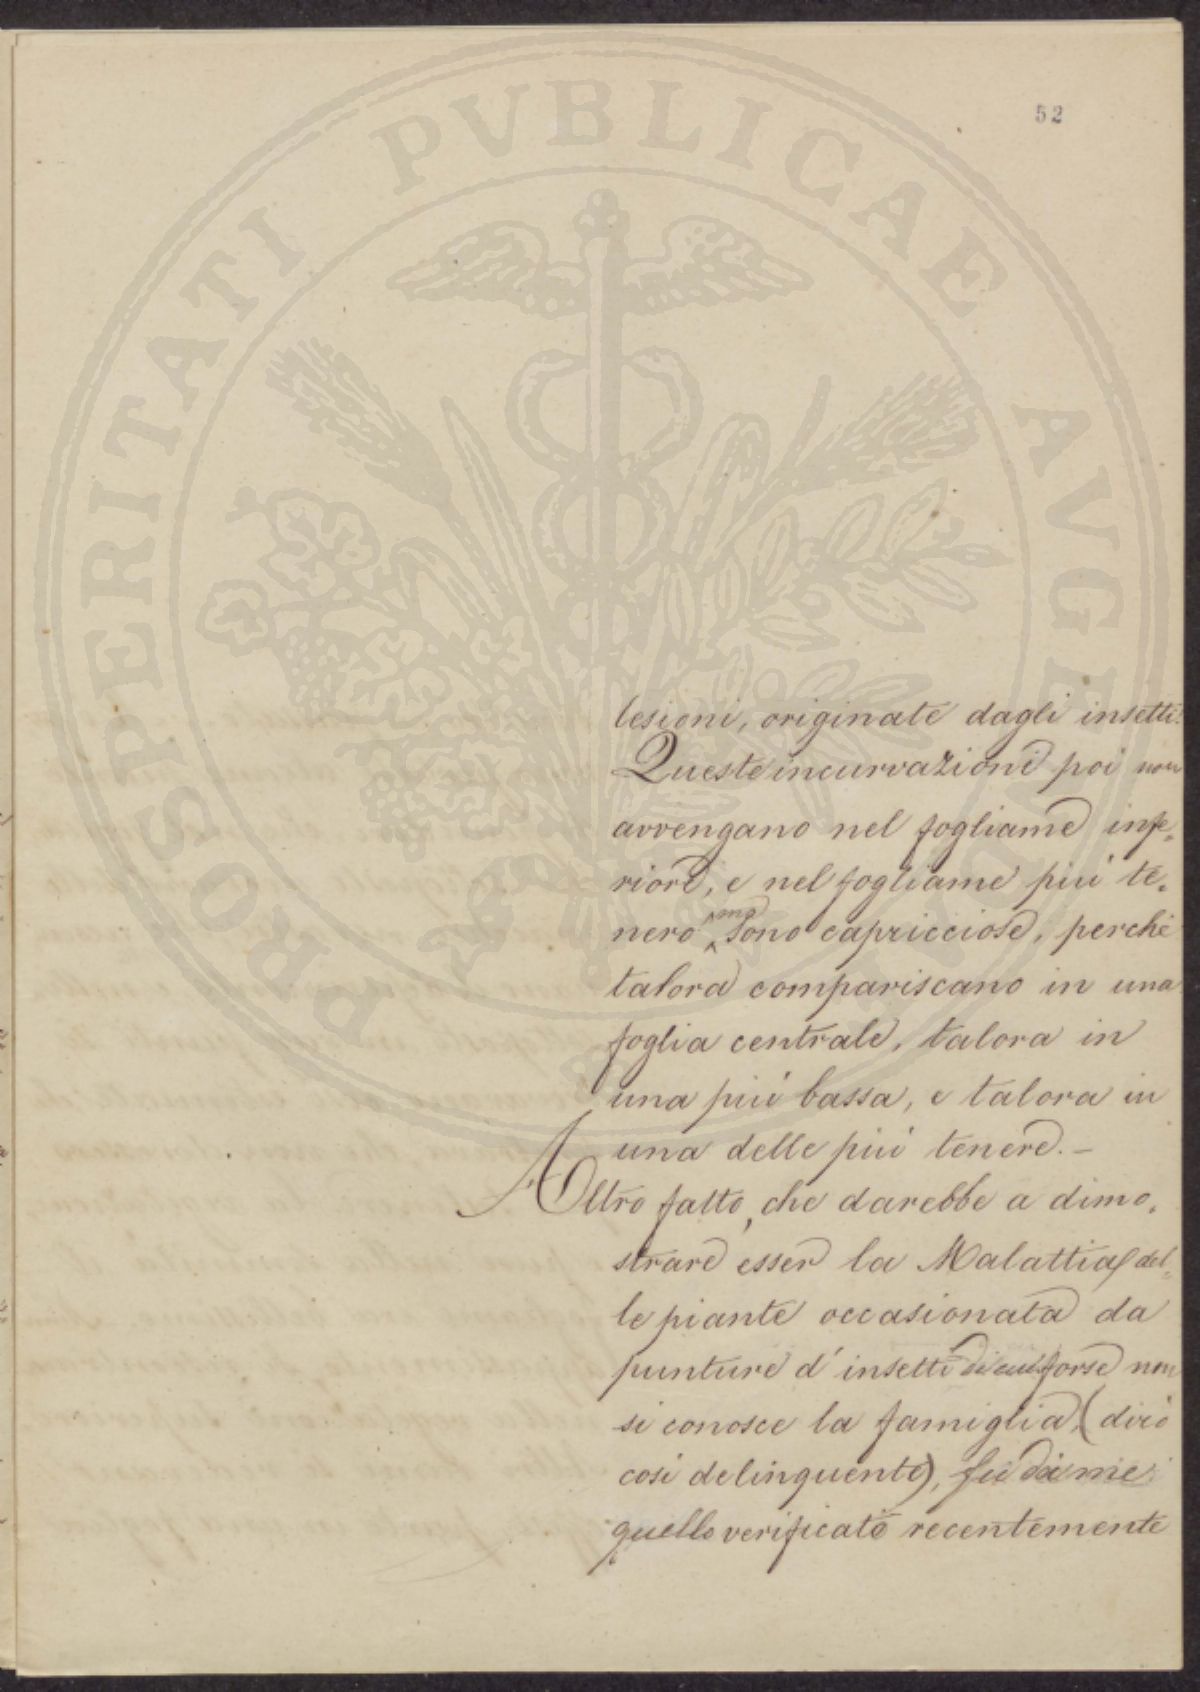 52
PROSPERITATI PUBLICAE AVGE
lesioni, originate dagli insetti.
Queste incurvazioni poi non
avvengano nel fogliame infe-
riore, e nel fogliame più te-
nero sono capricciose, perchè
talora compariscano in una
foglia centrale, talora in
una più bassa, e talora in
una delle più tenere. –
Altro fatto, che darebbe a dimo-
strare esser la Malattia del-
le piante occasionata da
punture d'insetti di cui forse non
si conosce la famiglia, (dirò
così delinquente), fu da me
quello verificato recentemente